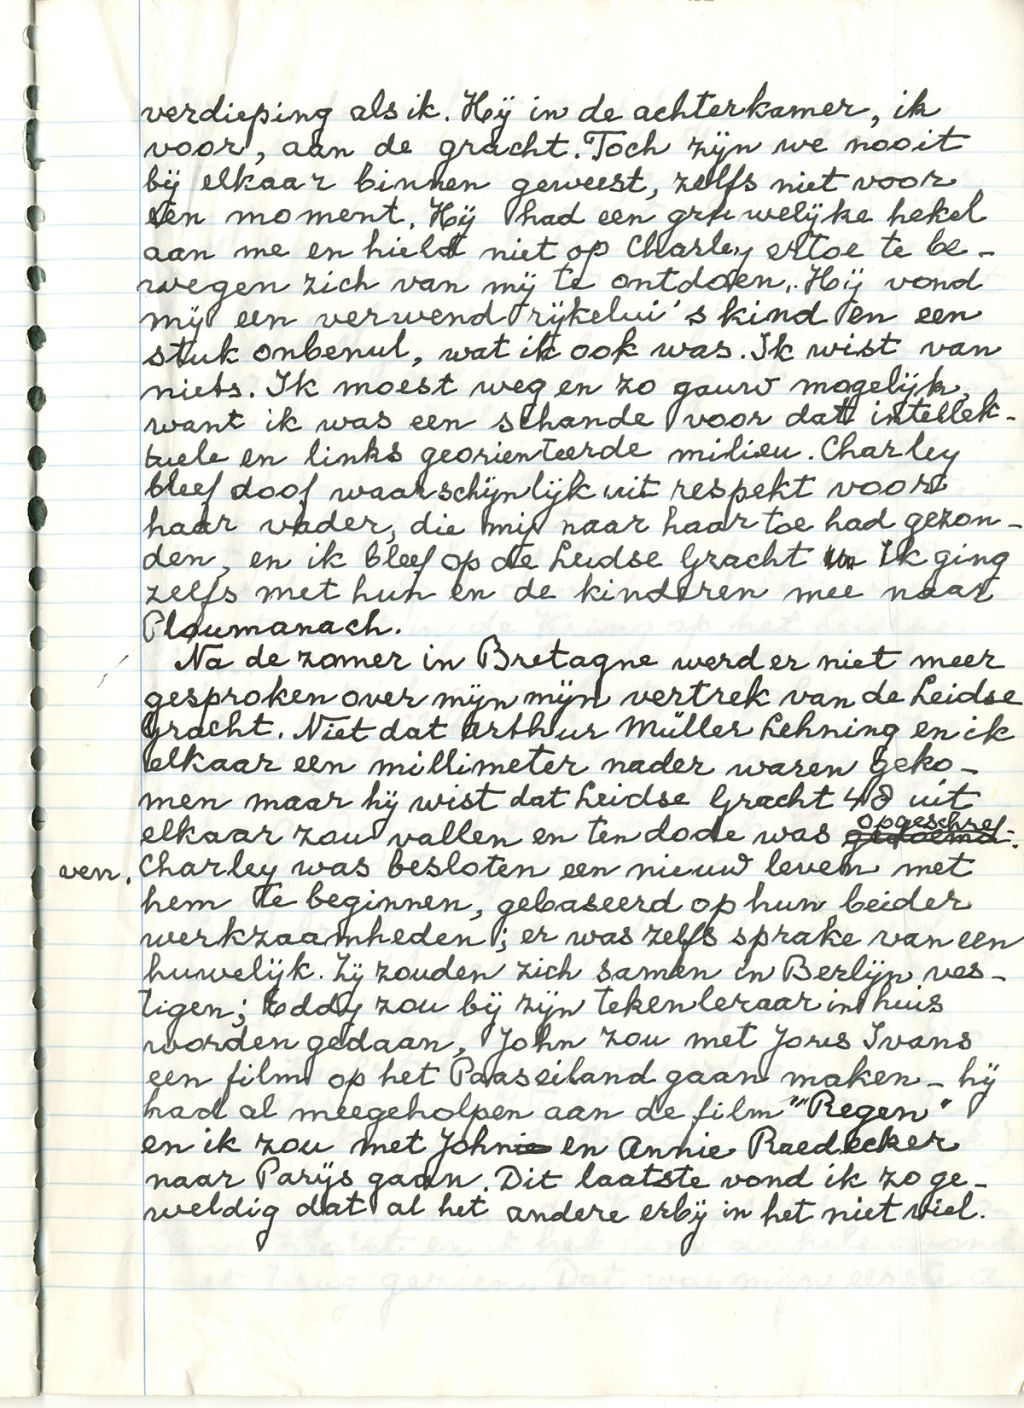 verdieping als ik. Hij in de achterkamer, ik
voor, aan de gracht. Toch zijn we nooit
bij elkaar binnen geweest, zelfs niet voor
een moment. Hij had een gruwelijke hekel
aan me en hield niet op Charley ertoe te be-
wegen zich van mij te ontdoen. Hij vond
mij een verwend rijkelui's kind en een
stuk onbenul, wat ik ook was. Ik wist van
niets. Ik moest weg en zo gauw mogelijk,
want ik was een schande voor dat intellek-
tuele en links georienteerde milieu. Charley
bleef doof waarschijnlijk uit respekt voor
haar vader, die mij naar haar toe had gezon-
den, en ik bleef op de Leidse Gracht Ik ging
zelfs met hun en de kinderen mee naar
Ploumanach.
Na de zomer in Bretagne werd er niet meer
gesproken over mijn mijn vertrek van de Leidse
Gracht. Niet dat Arthur Müller Lehning en ik
elkaar een millimeter nader waren geko-
men maar hij wist dat Leidse Gracht 48 uit
elkaar zou vallen en ten dode was gedoemd. opgeschre-
ven. Charley was besloten een nieuw leven met
hem te beginnen, gebaseerd op hun beider
werkzaamheden; er was zelfs sprake van een
huwelijk. Zij zouden zich samen in Berlijn ves-
tigen; Eddy zou bij zijn tekenleraar in huis
worden gedaan, John zou met Joris Ivans
een film op het Paaseiland gaan maken - hij
had al meegeholpen aan de film ""Regen"
en ik zou met John en Annie Raedecker
naar Parijs gaan. Dit laatste vond ik zo ge-
weldig dat al het andere erbij in het niet viel.